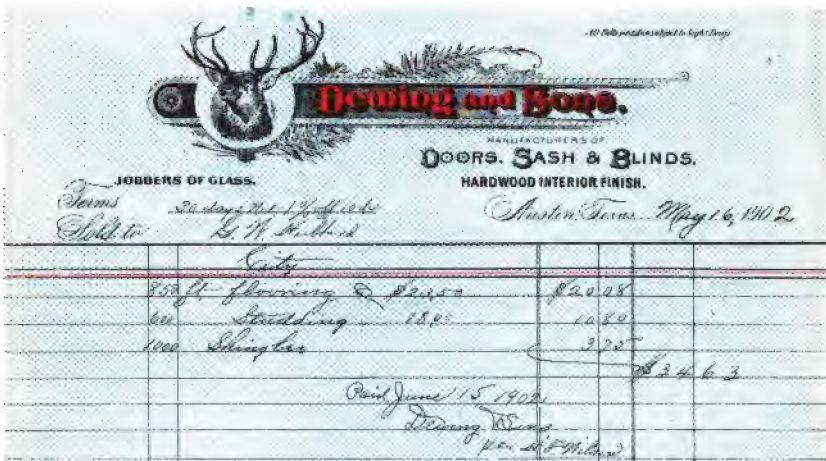 All Bills past due subject to Sight Draft
Dewing and Sons.
MANUFACTURERS OF
DOORS, SASH & BLINDS.
JOBBERS OF GLASS.
HARDWOOD INTERIOR FINISH.
Terms 30 days Net 1% off
Austin Texas May 16, 1902
Sold to G. W. Hubbard
City
850 ft flooring @ $23.50 $20 08
600 Studding 18.00 10 80
1000 Shingles 3 75
$34 63
Paid June 15 1902
Dewing & Sons
per